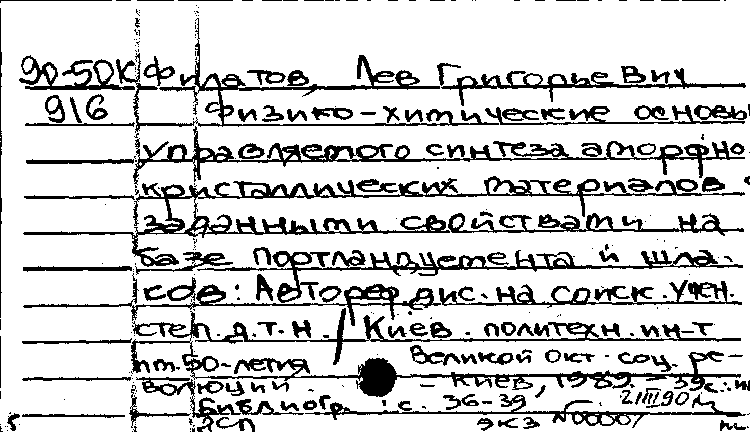 90-5DK Филатов, Лев Григорьевич
916 Физико-химические основы
управляемого синтеза аморфно
кристаллических материалов с
заданными свойствами на
базе портландцемента и шла-
ков: Автореф. дис. на соиск. учен.
степ. д.т.н. / Киев. политехн. ин-т
им. 50-летия Великой Окт. соц. ре-
волюции. - Киев, 1989. - 39с.: ил
Библиогр.: с. 36-39
ДСП экз N 00001